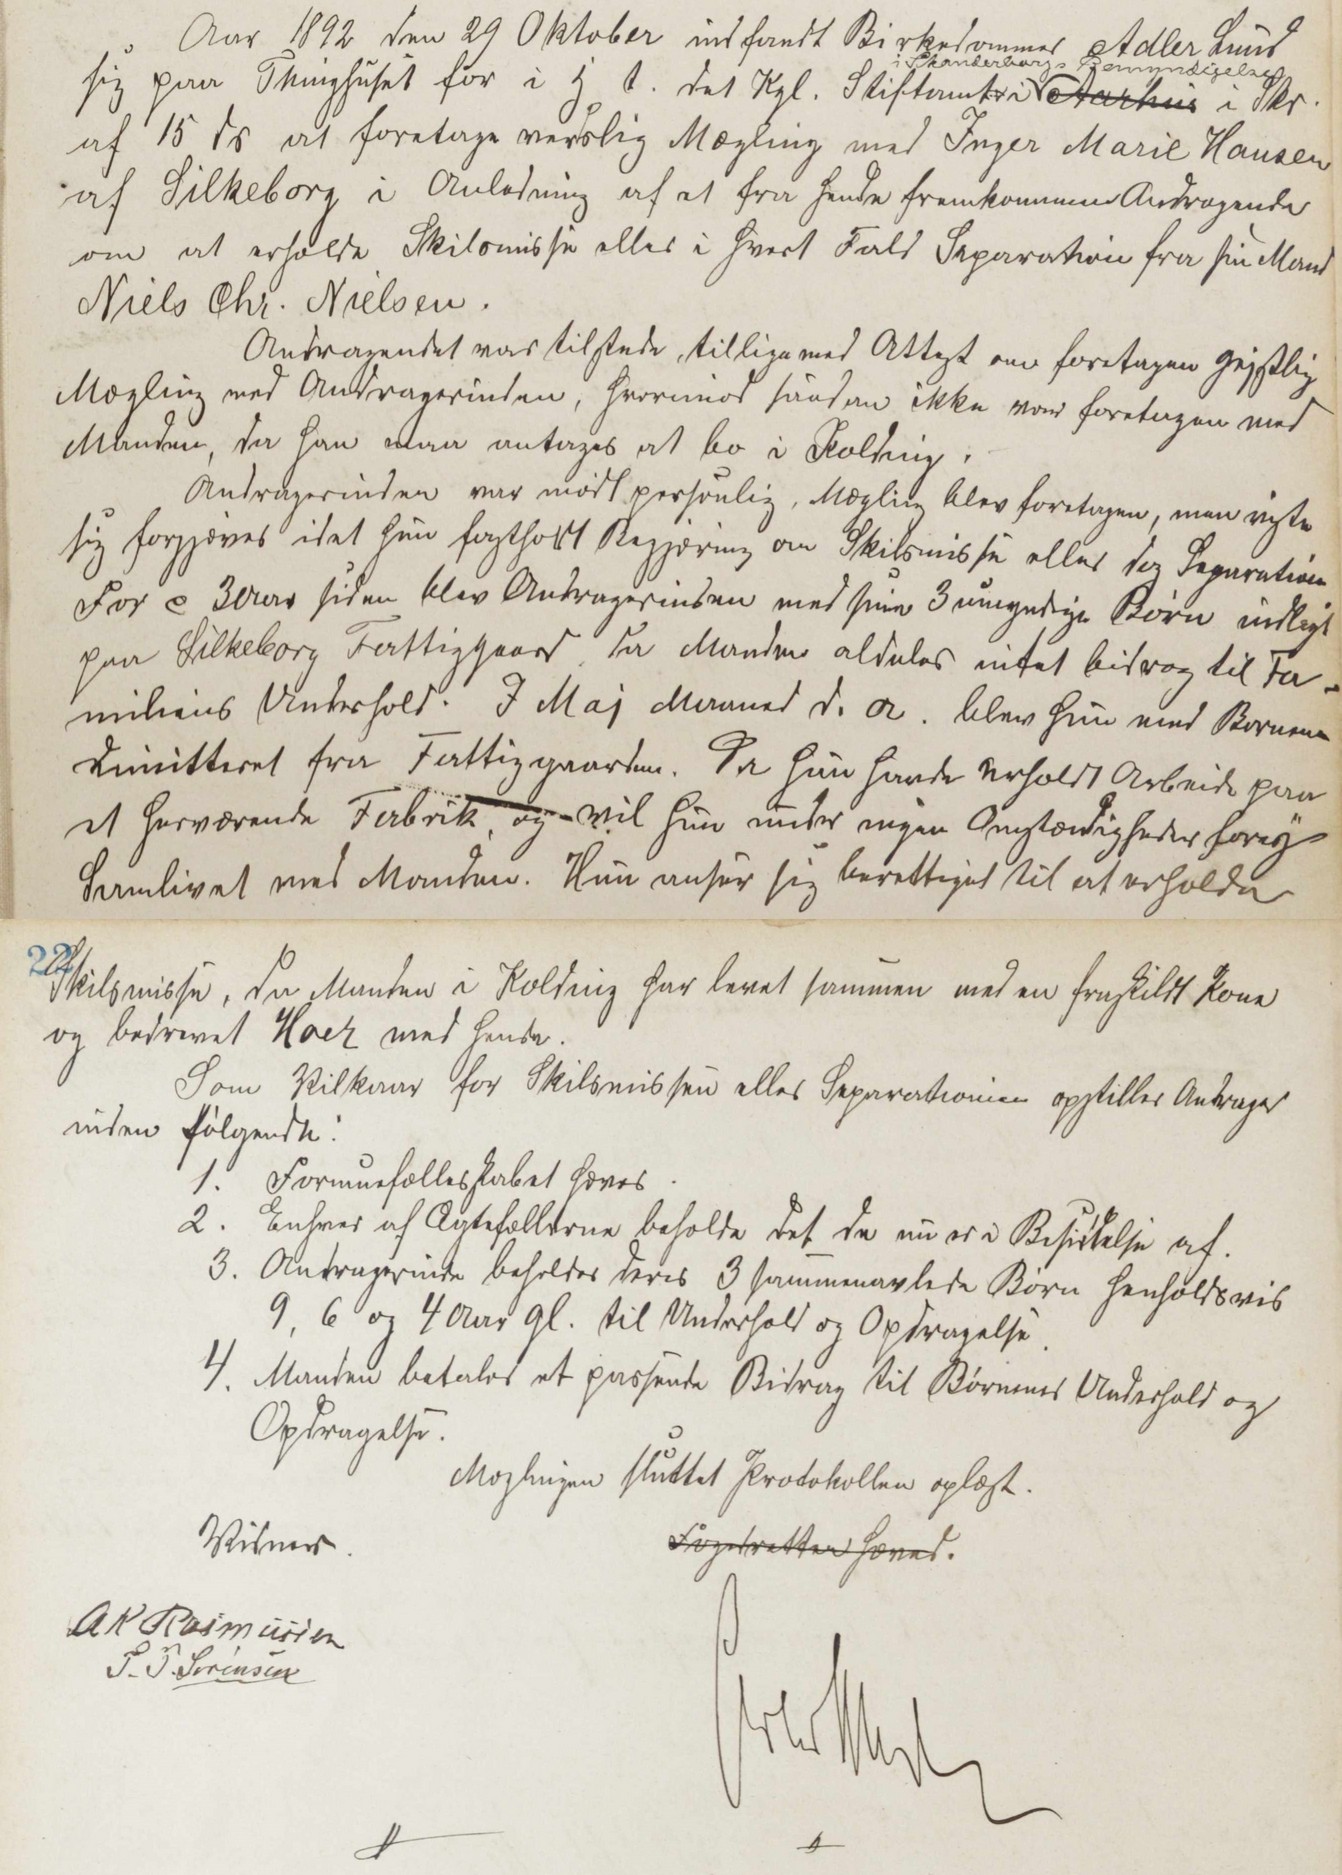 Aar 1892 den 29 Oktober indfandt Birkedommer Adler Lund
i Skanderborgs Bemyndigelse
sig paa Thinghuset for i H t. det Kgl. Stiftamts i Aarhus i Skr.
af 15 ds at foretage verdslig Mægling med Inger Marie Hansen
af Silkeborg i Anledning af et fra hende fremkommen Andragende
om at erholde Skilsmisse eller i hvert Fald Separation fra sin Mand
Niels Chr. Nielsen.
Andragendet var tilstede, tilligemed Attest om foretagen gejstlig
Mægling med Andragerinden, hvorimod saadan ikke var foretagen med
Manden, da han maa antages at bo i Kolding.
Andragerinden var mødt personlig, Mægling blev foretagen, men viste
sig forgjæves idet hun fastholdt Begjæring om Skilsmisse eller dog Separation
For c 3 Aar siden blev Andragerinden med sine 3 umyndige Børn indlagt
paa Silkeborg Fattiggaard da Manden aldeles intet bidrog til Fa-
miliens Underhold. I Maj Maaned d. A. blev hun med Børnene
dimitteret fra Fattiggaarden. Da hun havde erholdt Arbeide paa
et herværende Fabrik, og vil hun under ingen Omstændigheder forny
Samlivet med Manden. Hun anser sig berettiget til at erholde
22
Skilsmisse, da Manden i Kolding har levet sammen med en fraskildt Kone
og bedrevet Hoer med hende.
Som Vilkaar for Skilsmissen eller Separationen opstiller Andrager
inden følgende:
1. Formuefællesskabet hæves.
2. Enhver af Ægtefællerne beholde det de nu er i Besiddelse af.
3. Andragerinde beholder deres 3 sammenavlede Børn henholdsvis
9, 6 og 4 Aar gl. til Underhold og Opdragelse.
4. Manden betaler et passende Bidrag til Børnenes Underhold og
Opdragelse.
Mæglingen sluttet Protokollen oplæst.
Vidner.
Fogedretten hævet.
A K Rasmussen
S. P. Sørensen